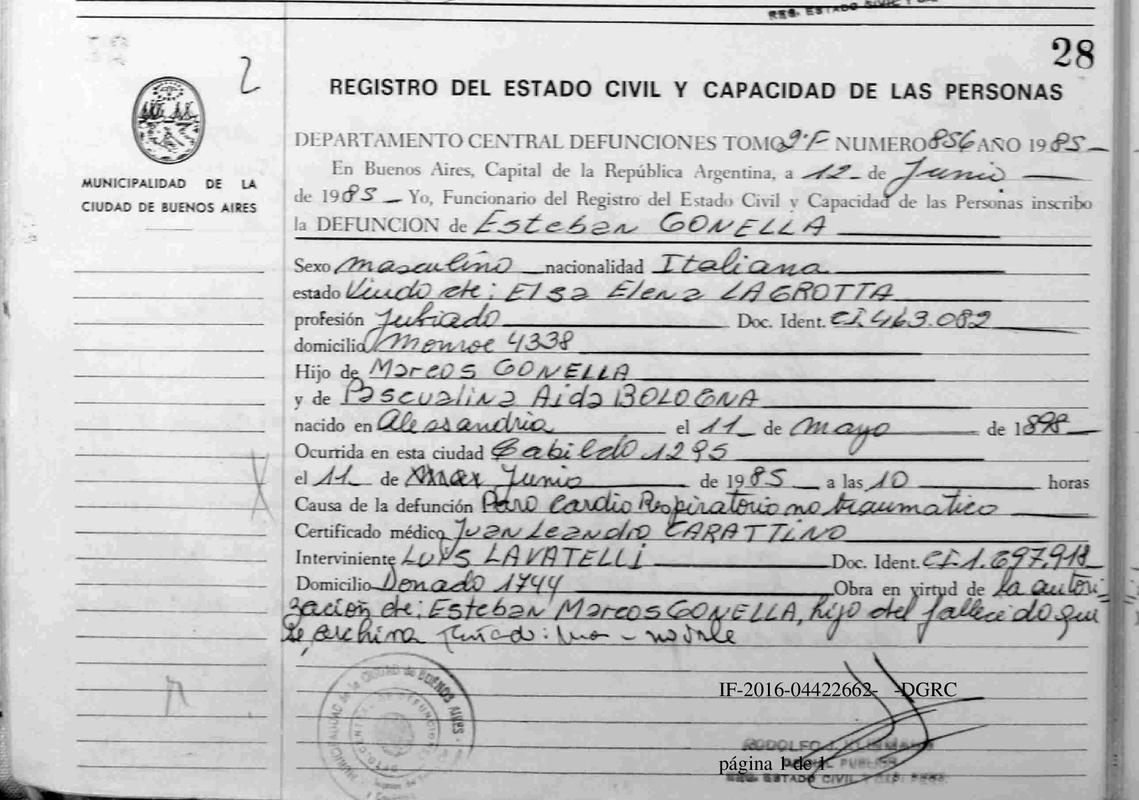 REG. ESTADO CIVIL Y
28
2
REGISTRO DEL ESTADO CIVIL Y CAPACIDAD DE LAS PERSONAS
MUNICIPALIDAD DE LA
CIUDAD DE BUENOS AIRES
DEPARTAMENTO CENTRAL DEFUNCIONES TOMO 2º F NUMERO 856 AÑO 1985
En Buenos Aires, Capital de la República Argentina, a 12 de Junio
de 1985 Yo, Funcionario del Registro del Estado Civil y Capacidad de las Personas inscribo
la DEFUNCION de Esteban GONELLA
Sexo masculino nacionalidad Italiana
estado Viudo de: Elsa Elena LAGROTTA
profesión Jubilado Doc. Ident. CI 463.082
domicilio Monroe 4338
Hijo de Marcos GONELLA
y de Pascualina Aida BOLOGNA
nacido en Alessandria el 11 de mayo de 1898
Ocurrida en esta ciudad Cabildo 1295
el 11 de Junio de 1985 a las 10 horas
Causa de la defunción Paro Cardio Respiratorio no traumatico
Certificado médico Juan Leandro CARATTINO
Interviniente LUIS LAVATELLI Doc. Ident. CI 1.697.918
Domicilio Donado 1744 Obra en virtud de la autori-
zación de: Esteban Marcos GONELLA, hijo del fallecido que
se archiva no vale
IF-2016-04422662- -DGRC
MUNICIPALIDAD de la CIUDAD de BUENOS AIRES
página 1 de 1
REG. ESTADO CIVIL